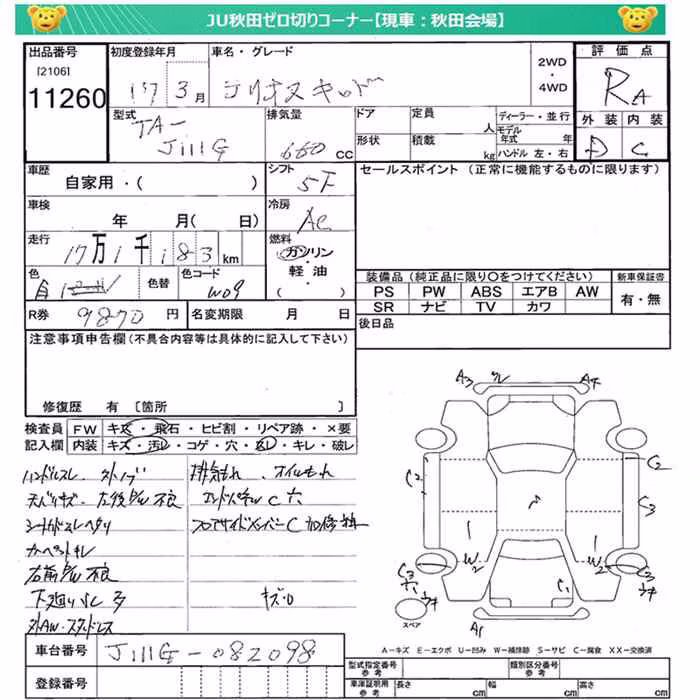 JU秋田ゼロ切りコーナー【現車：秋田会場】
出品番号
[2106]
11260
初度登録年月
17 3月
車名・グレード
テリオスキッド
2WD
・
4WD
評価点
RA
型式
TA-
J111G
排気量
660 cc
ドア
定員
人
形状
積載
kg
ディーラー・並行
モデル年式 年
ハンドル 左・右
外装 内装
D C
車歴
自家用・( )
シフト
5F
セールスポイント（正常に機能するものに限ります）
車検
年 月( 日)
冷房
AC
走行
17万1千183km
燃料
ガソリン
・
軽油
・
( )
色
色替
色コード
W09
装備品（純正品に限り〇をつけてください）
新車保証書
PS PW ABS エアB AW
有・無
SR ナビ TV カワ
R券 9870円
名変期限 月 日
後日品
注意事項申告欄（不具合内容等は具体的に記入して下さい）
修復歴 有 [箇所 ]
検査員 FW キズ・飛石・ヒビ割・リペア跡・×要
記入欄 内装 キズ・汚レ・コゲ・穴・・キレ・破レ
ハンドルスレ
排気もれ、オイルもれ
天バリキズ 左後P/W不良
C穴
カーペットキレ
右前P/W不良
キズ
A3
A4
C2
C2
C3
W2
W2
C3
C3
C1
A1
スペア
A－キズ E－エクボ U－凹み W－補修跡 S－サビ C－腐食 XX－交換済
車台番号 J111G-082098
登録番号
型式指定番号
参考
類別区分番号
参考
車庫証明用
参考
長さ cm
幅 cm
高さ cm